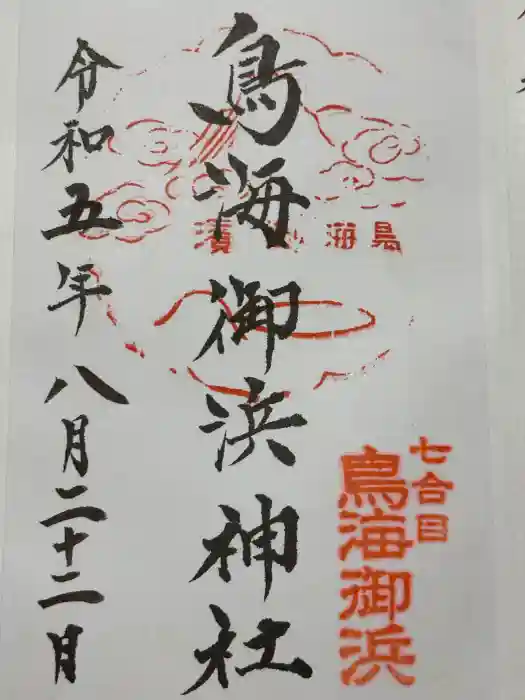 七合目
鳥海御浜
鳥海御濱
鳥海御浜神社
令和五年八月二十二日